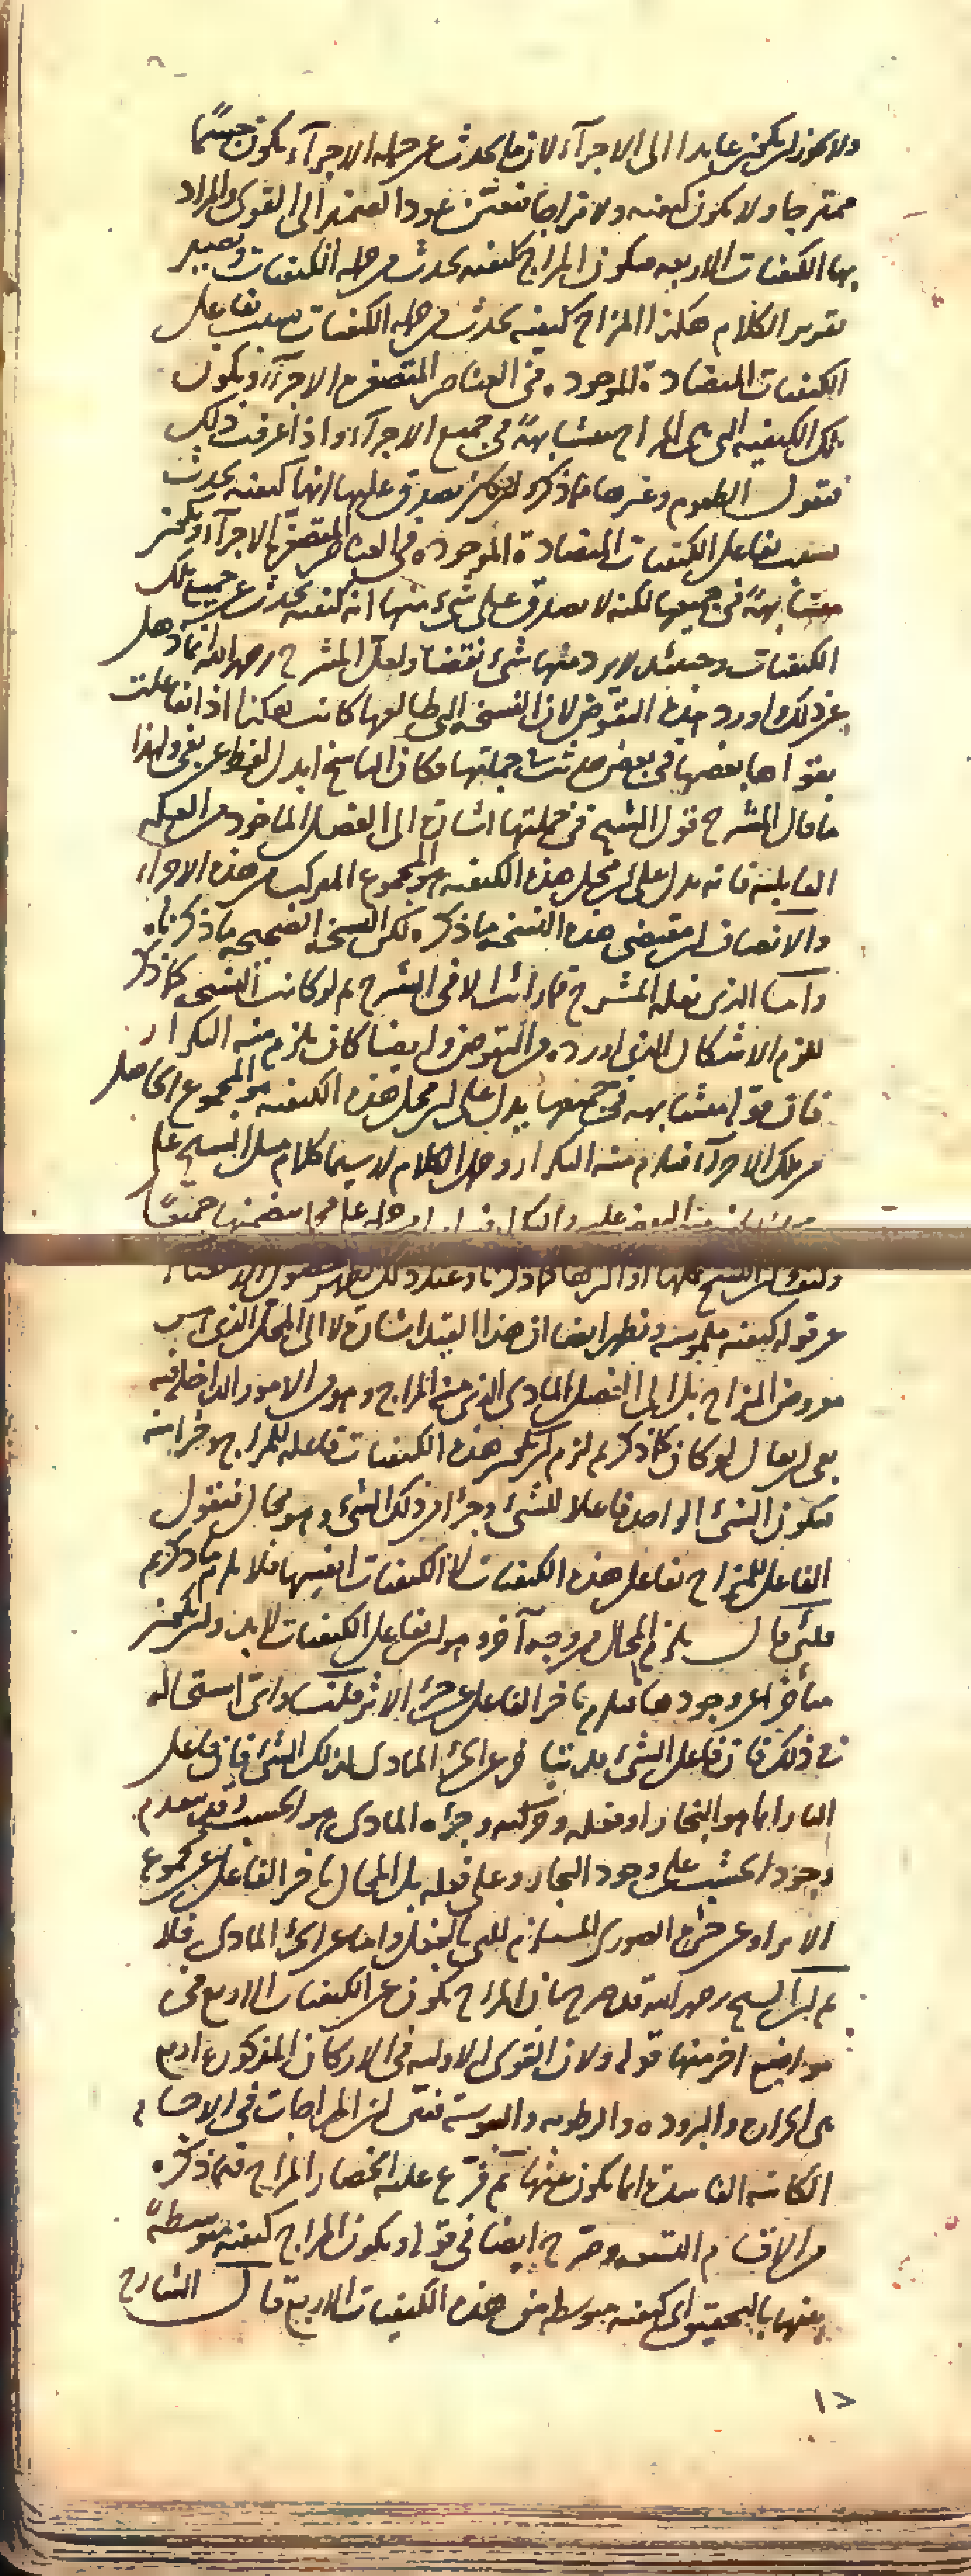 ولا يجوز ان يكون عايدا الى الاجزاء لان ما يحدث عن جملة الاجزاء يكون جسمًا
ممتزجا ولا يكون كيفيه ولا مزاجا فتعين عود الضمير الى القوى والمراد
بها الكيفيات الاربعه فيكون المزاج كيفيه تحدث من جملة الكيفيات ويصير
تقرير الكلام هكذا المزاج كيفيه تحدث من جملة الكيفيات بسبب تفاعل
الكيفيات المتضادة الموجوده في العناصر المتصغره الاجزاء ويكون
تلك الكيفيه التي هي المزاج متشابهةً في جميع الاجزاء واذا عرفت ذلك
فنقول الطعوم وغيرها مما ذكره وان صدق عليها انها كيفيه تحدث
بسبب تفاعل الكيفيات المتضادة الموجوده في العناصر المتصغرة الاجزاء ويكون
متشابهةً في جميعها لكنه لا يصدق على شيء منها انه كيفيه تحدث عن جميع تلك
الكيفيات وحينئذ لا يرد منها شيء نقضا ولعل المشرح رحمه الله انما ذهل
عن ذلك واورد هذه النقوض لان النسخه التي طالعها كانت هكذا اذا تفاعلت
بقواها بعضها في بعض حدثت في جملتها وكان الناسخ ابدل لفظ عن بفي ولهذا
ما قال المشرح قول الشيخ في جملتها اشارة الى الفصل الماخوذ من العلة
القابليه فانه يدل على ان محل هذه الكيفيه هو المجموع المركب من هذه الاجزاء
والانصاف ان مقتضى هذه النسخه ما ذكره لكن النسخه الصحيحه ما ذكرناه
واما الذي نقله المشرح فما رأيته الا في الشرح ثم لو كانت النسخه كما ذكر
للزم الاشكال الذي اورده من النقوض وايضا كان يلزم منه التكرار
فان قوله متشابهه في جميعها يدل على ان محل هذه الكيفيه هو المجموع الحاصل
من تلك الاجزاء فيلزم منه التكرار وهذا الكلام لا سيما كلام مثل الشيخ
عن قوله كيفيه ملموسه ويظهر ايضا ان هذا القيد اشارة لا الى المحل الذي ليس
معروض المزاج بل الى الفصل المادي الذي من المزاج وهو من الامور الداخلة فيه
بقي ان يقال لو كان كما ذكرتم لزم ان يكون هذه الكيفيات فاعله للمزاج وجزا منه
فيكون الشيء الواحد فاعلا للشيء وجزأ من ذلك الشيء وهو محال فنقول
الفاعل للمزاج تفاعل هذه الكيفيات لا الكيفيات انفسها فلا يلزم ما ذكرتم
فلئن قال يلزم المحال من وجه آخر وهو ان تفاعل الكيفيات لا بد وان يكون
متأخرا عن وجودها فيلزم تاخر الفاعل عن جزء الاثر قلنا واي استحاله
في ذلك فان فاعل الشيء قد يتاخر عن الجزء المادي لذلك الشيء فان فاعل
الباب انما هو النجار او فعله وحركته وجزءه المادي هو الخشب وقد يتقدم
وجود الخشب على وجود النجار وعلى فعله بل المحال تاخر الفاعل عن مجموع
الاثر او عن جزئه الصوري المستلزم للشيء بالفعل واما عن الجزء المادي فلا
ثم ان الشيخ رحمه الله قد صرح بان المزاج يكون عن الكيفيات الاربع في
مواضع اخر منها قوله ولان القوى الاوليه في الاركان المذكوره اربع
هي الحرارة والبروده والرطوبه واليبوسة فبيّن ان المزاجات في الاجسام
الكائنه الفاسدة انما يكون عنها ثم فرّع عليه انحصار المزاج فيما ذكره
من الاقسام التسعه وصرّح ايضا في قوله ويكون المزاج كيفيه متوسطةً
بينها بالتحقيق اي كيفيه متوسطه من هذه الكيفيات الاربع قال الشارح
١٢